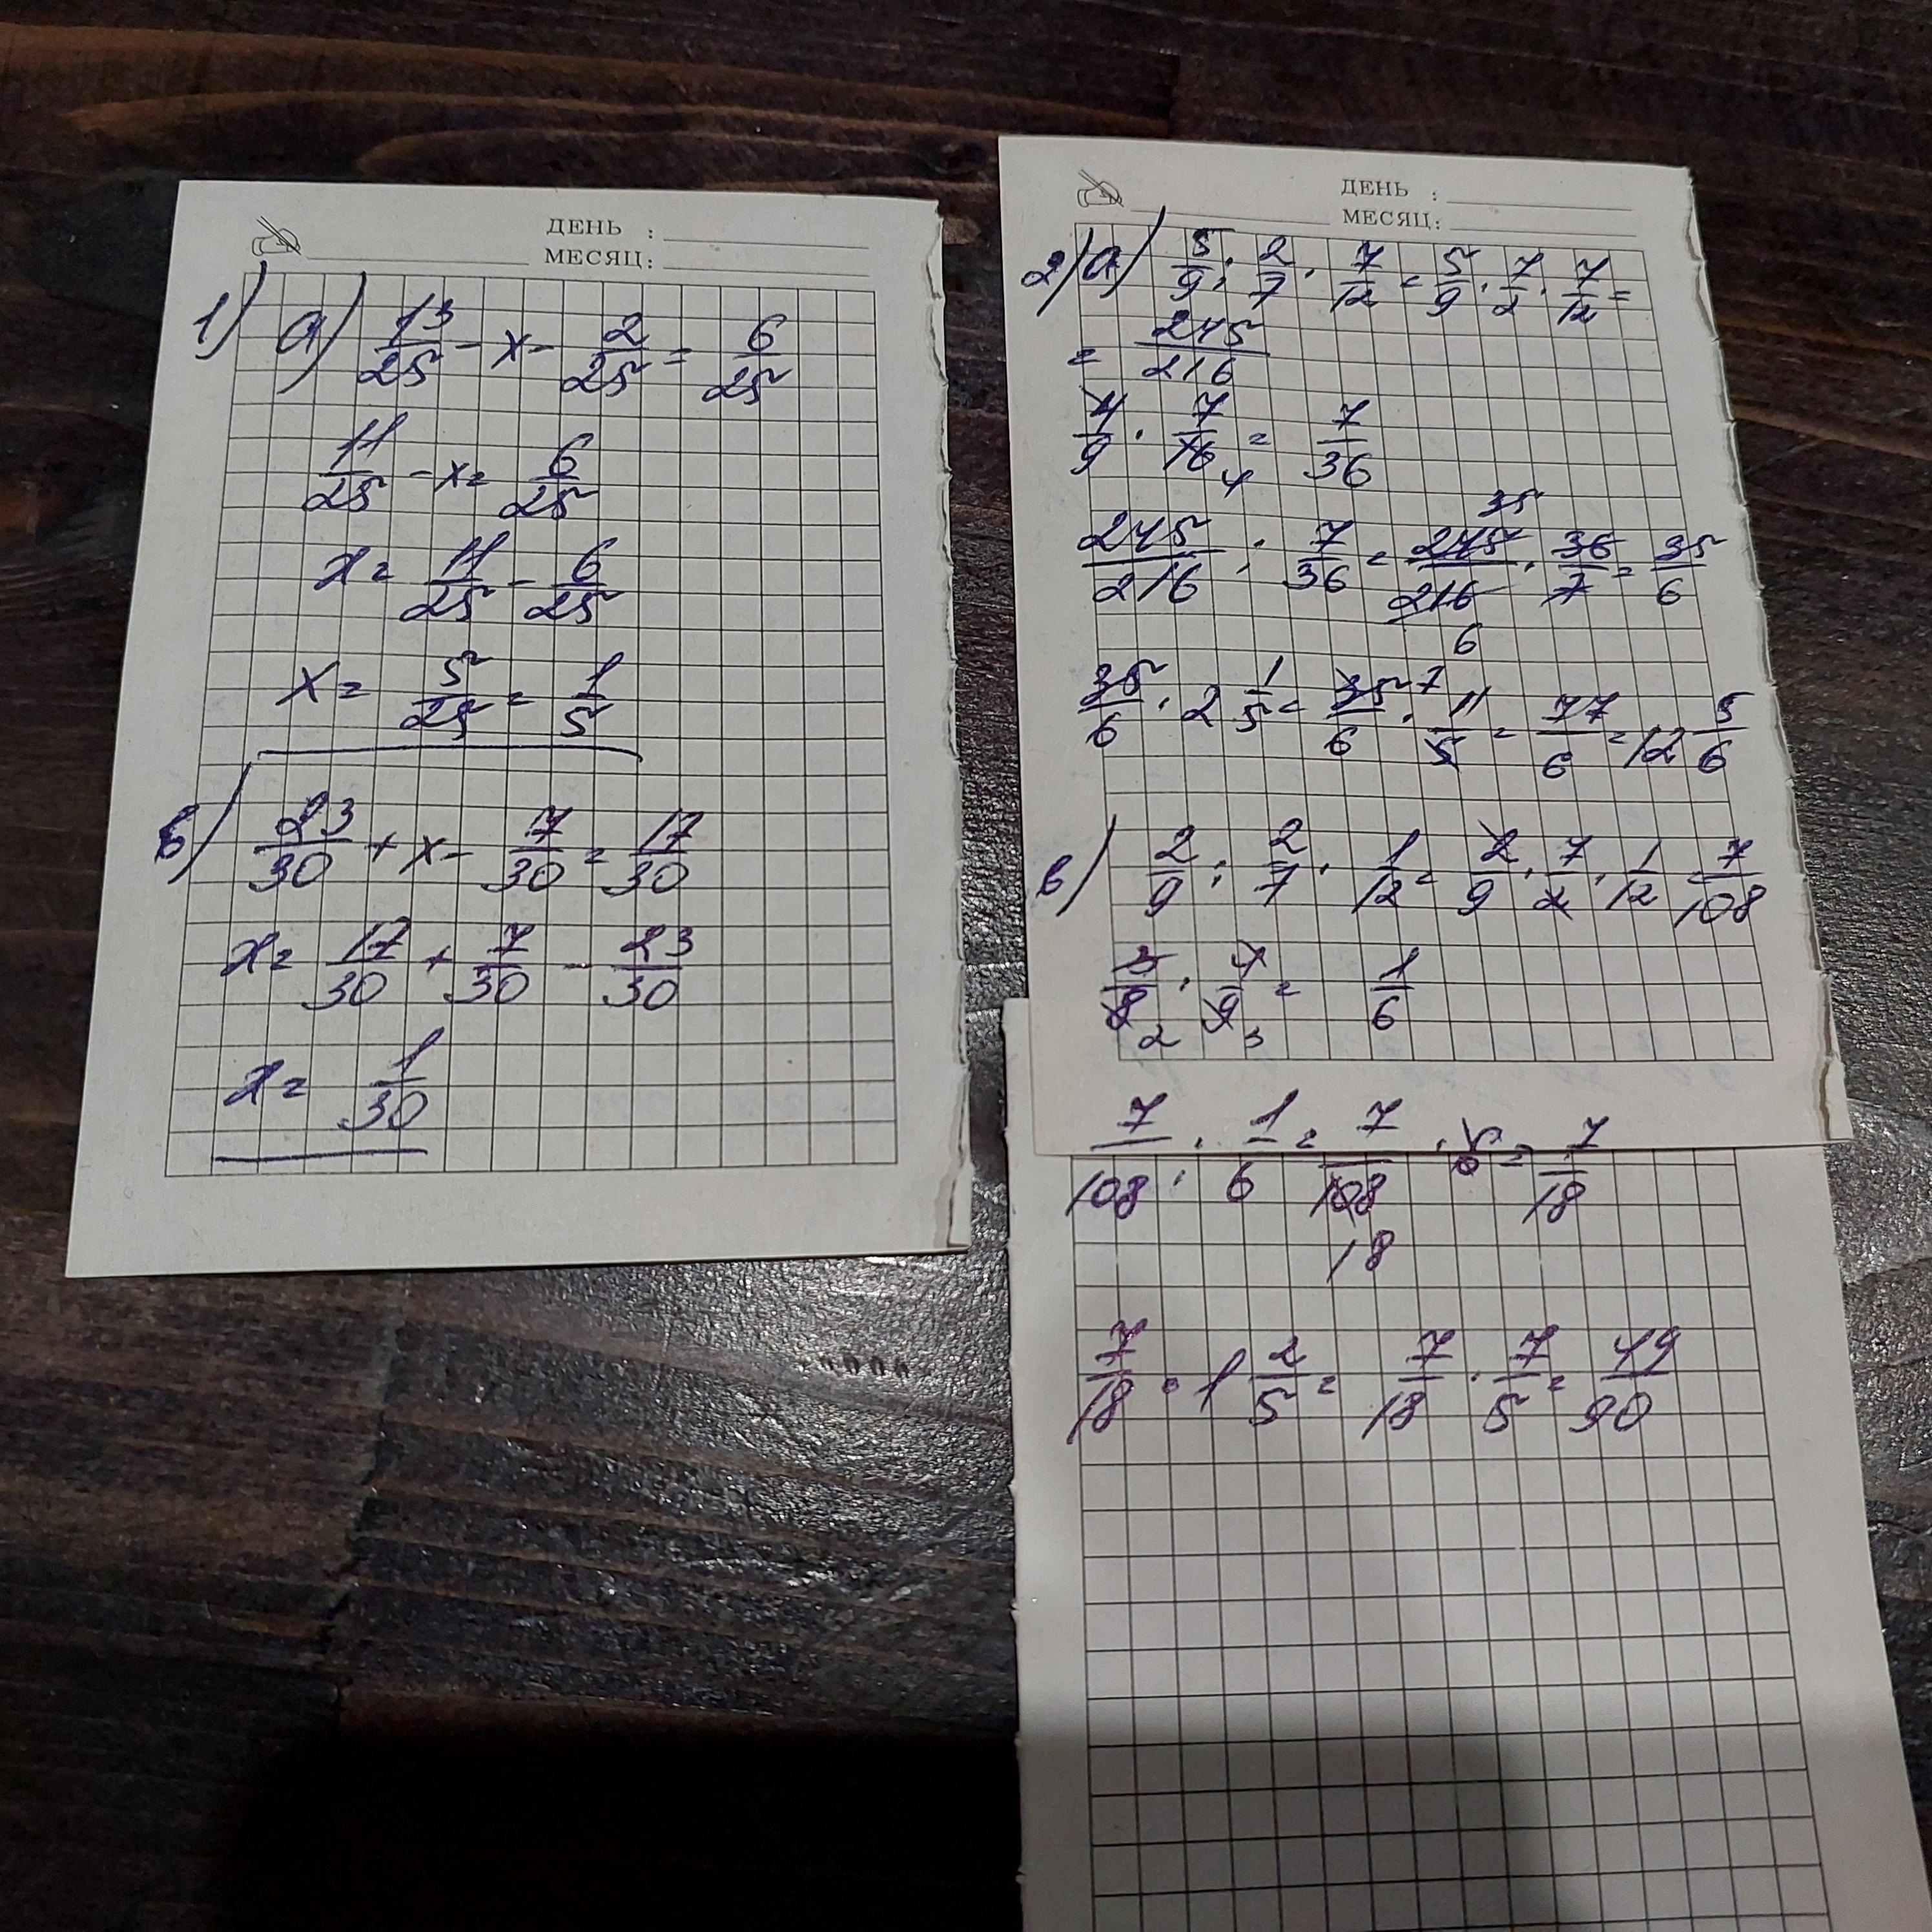 ДЕНЬ :
МЕСЯЦ:
1) а) 13/25 - x - 2/25 = 6/25
11/25 - x = 6/25
x = 11/25 - 6/25
x = 5/25 = 1/5
б) 23/30 + x - 7/30 = 17/30
x = 17/30 + 7/30 - 23/30
x = 1/30
ДЕНЬ :
МЕСЯЦ:
2) а) 5/9 : 2/7 · 7/12 = 5/9 · 7/2 · 7/12 =
= 245/216
4/9 · 7/16 = 7/36
4
35
245/216 : 7/36 = 245/216 · 36/7 = 35/6
6
35/6 · 2 1/5 = 35/6 7 · 11/5 = 77/6 = 12 5/6
в) 2/9 : 2/7 · 1/12 = 2/9 · 7/2 · 1/12 = 7/108
3/8 · 4/9 = 1/6
2 3
7/108 : 1/6 = 7/108 · 6 = 7/18
18
7/18 · 1 2/5 = 7/18 · 7/5 = 49/90